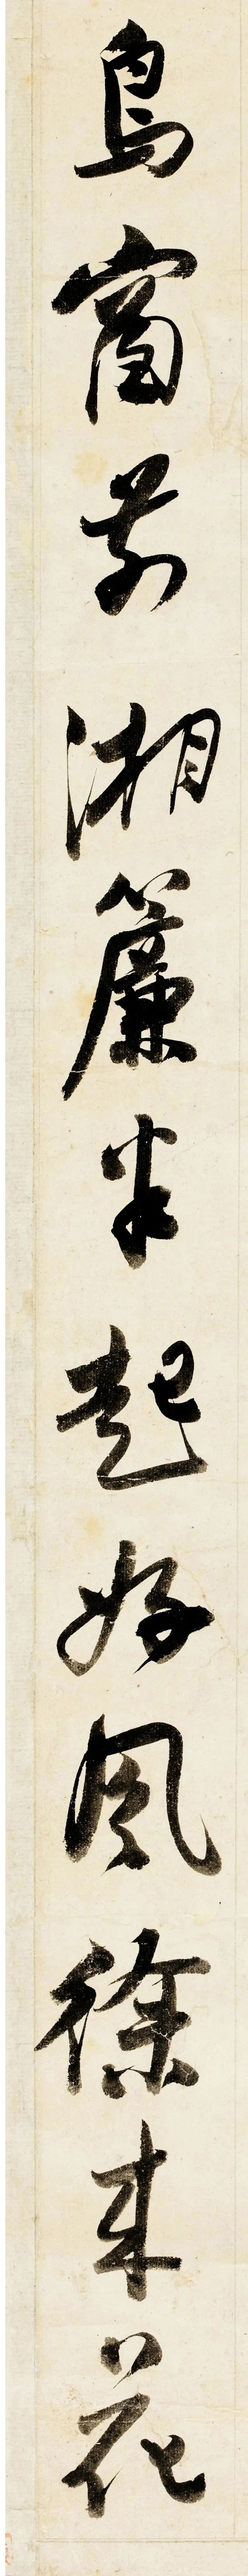 鳥窗前湘簾半起好風徐来花